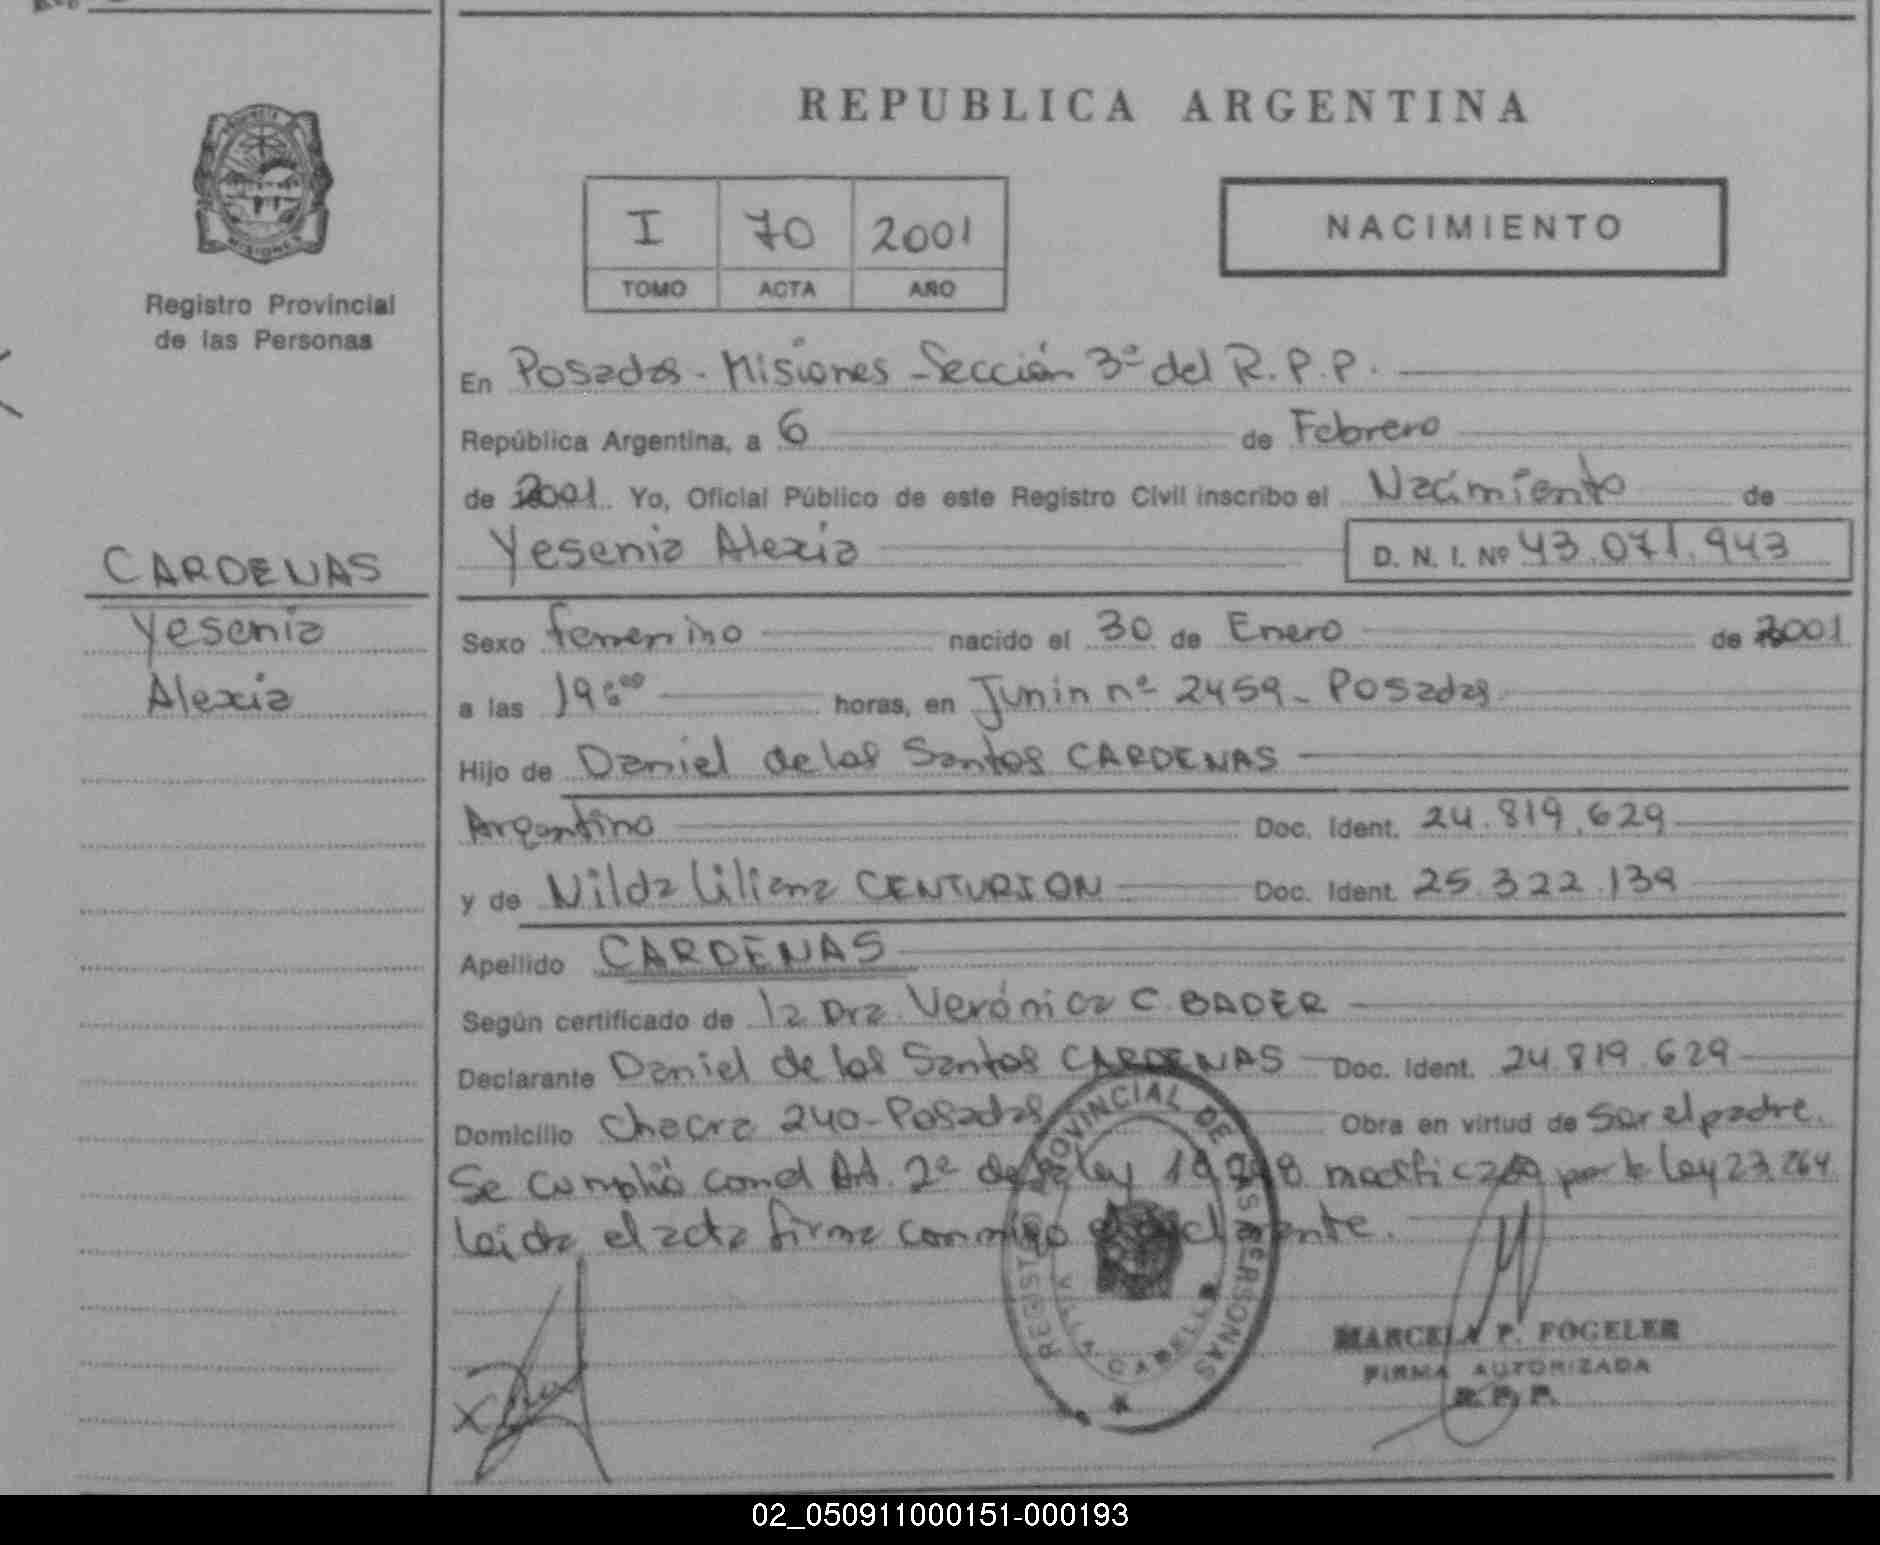 REPUBLICA ARGENTINA
I 70 2001
TOMO ACTA AÑO
NACIMIENTO
PROVINCIA
MISIONES
Registro Provincial
de las Personas
En Posadas - Misiones - Sección 3ª del R.P.P.
República Argentina, a 6 de Febrero
de 2001 Yo, Oficial Público de este Registro Civil inscribo el Nacimiento de
Yesenia Alexia D. N. I. Nº 43.071.943
CARDENAS
Yesenia
Alexia
Sexo femenino nacido el 30 de Enero de 2001
a las 19:00 horas, en Junin nº 2459 - Posadas
Hijo de Daniel de los Santos CARDENAS
Argentino Doc. Ident. 24.819.629
y de Nilda Liliana CENTURION Doc. Ident. 25.322.139
Apellido CARDENAS
Según certificado de la Dra. Verónica C. BADER
Declarante Daniel de los Santos CARDENAS Doc. Ident. 24.819.629
Domicilio Chacra 240 - Posadas Obra en virtud de Ser el padre.
Se cumplió con el Art. 2º de la ley modificado por la Ley 23.264
Leída el acta firma conmigo el declarante.
REGISTRO PROVINCIAL DE LAS PERSONAS
VILLA CABELLO
MARCELA P. FOGELER
FIRMA AUTORIZADA
R. P. P.
02_050911000151-000193